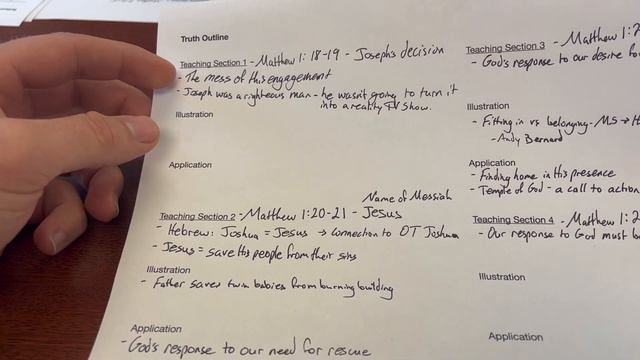 Truth Outline
Teaching Section 1 - Matthew 1:18-19 - Joseph's decision
- The mess of this engagement
- Joseph was a righteous man - he wasn't going to turn it
into a reality TV show.
Illustration
Application
Name of Messiah
Teaching Section 2 - Matthew 1:20-21 - Jesus
- Hebrew: Joshua = Jesus → connection to OT Joshua
- Jesus = save His people from their sins
Illustration
- Father saves twin babies from burning building
Application
- God's response to our need for rescue
Teaching Section 3 - Matthew 1:2
- God's response to our desire fo
Illustration
- Fitting in vs belonging - MS → H
- Andy Bernard
Application
- Finding home in His presence
- Temple of God - a call to action
Teaching Section 4 - Matthew 1:2
- Our response to God must b
Illustration
Application